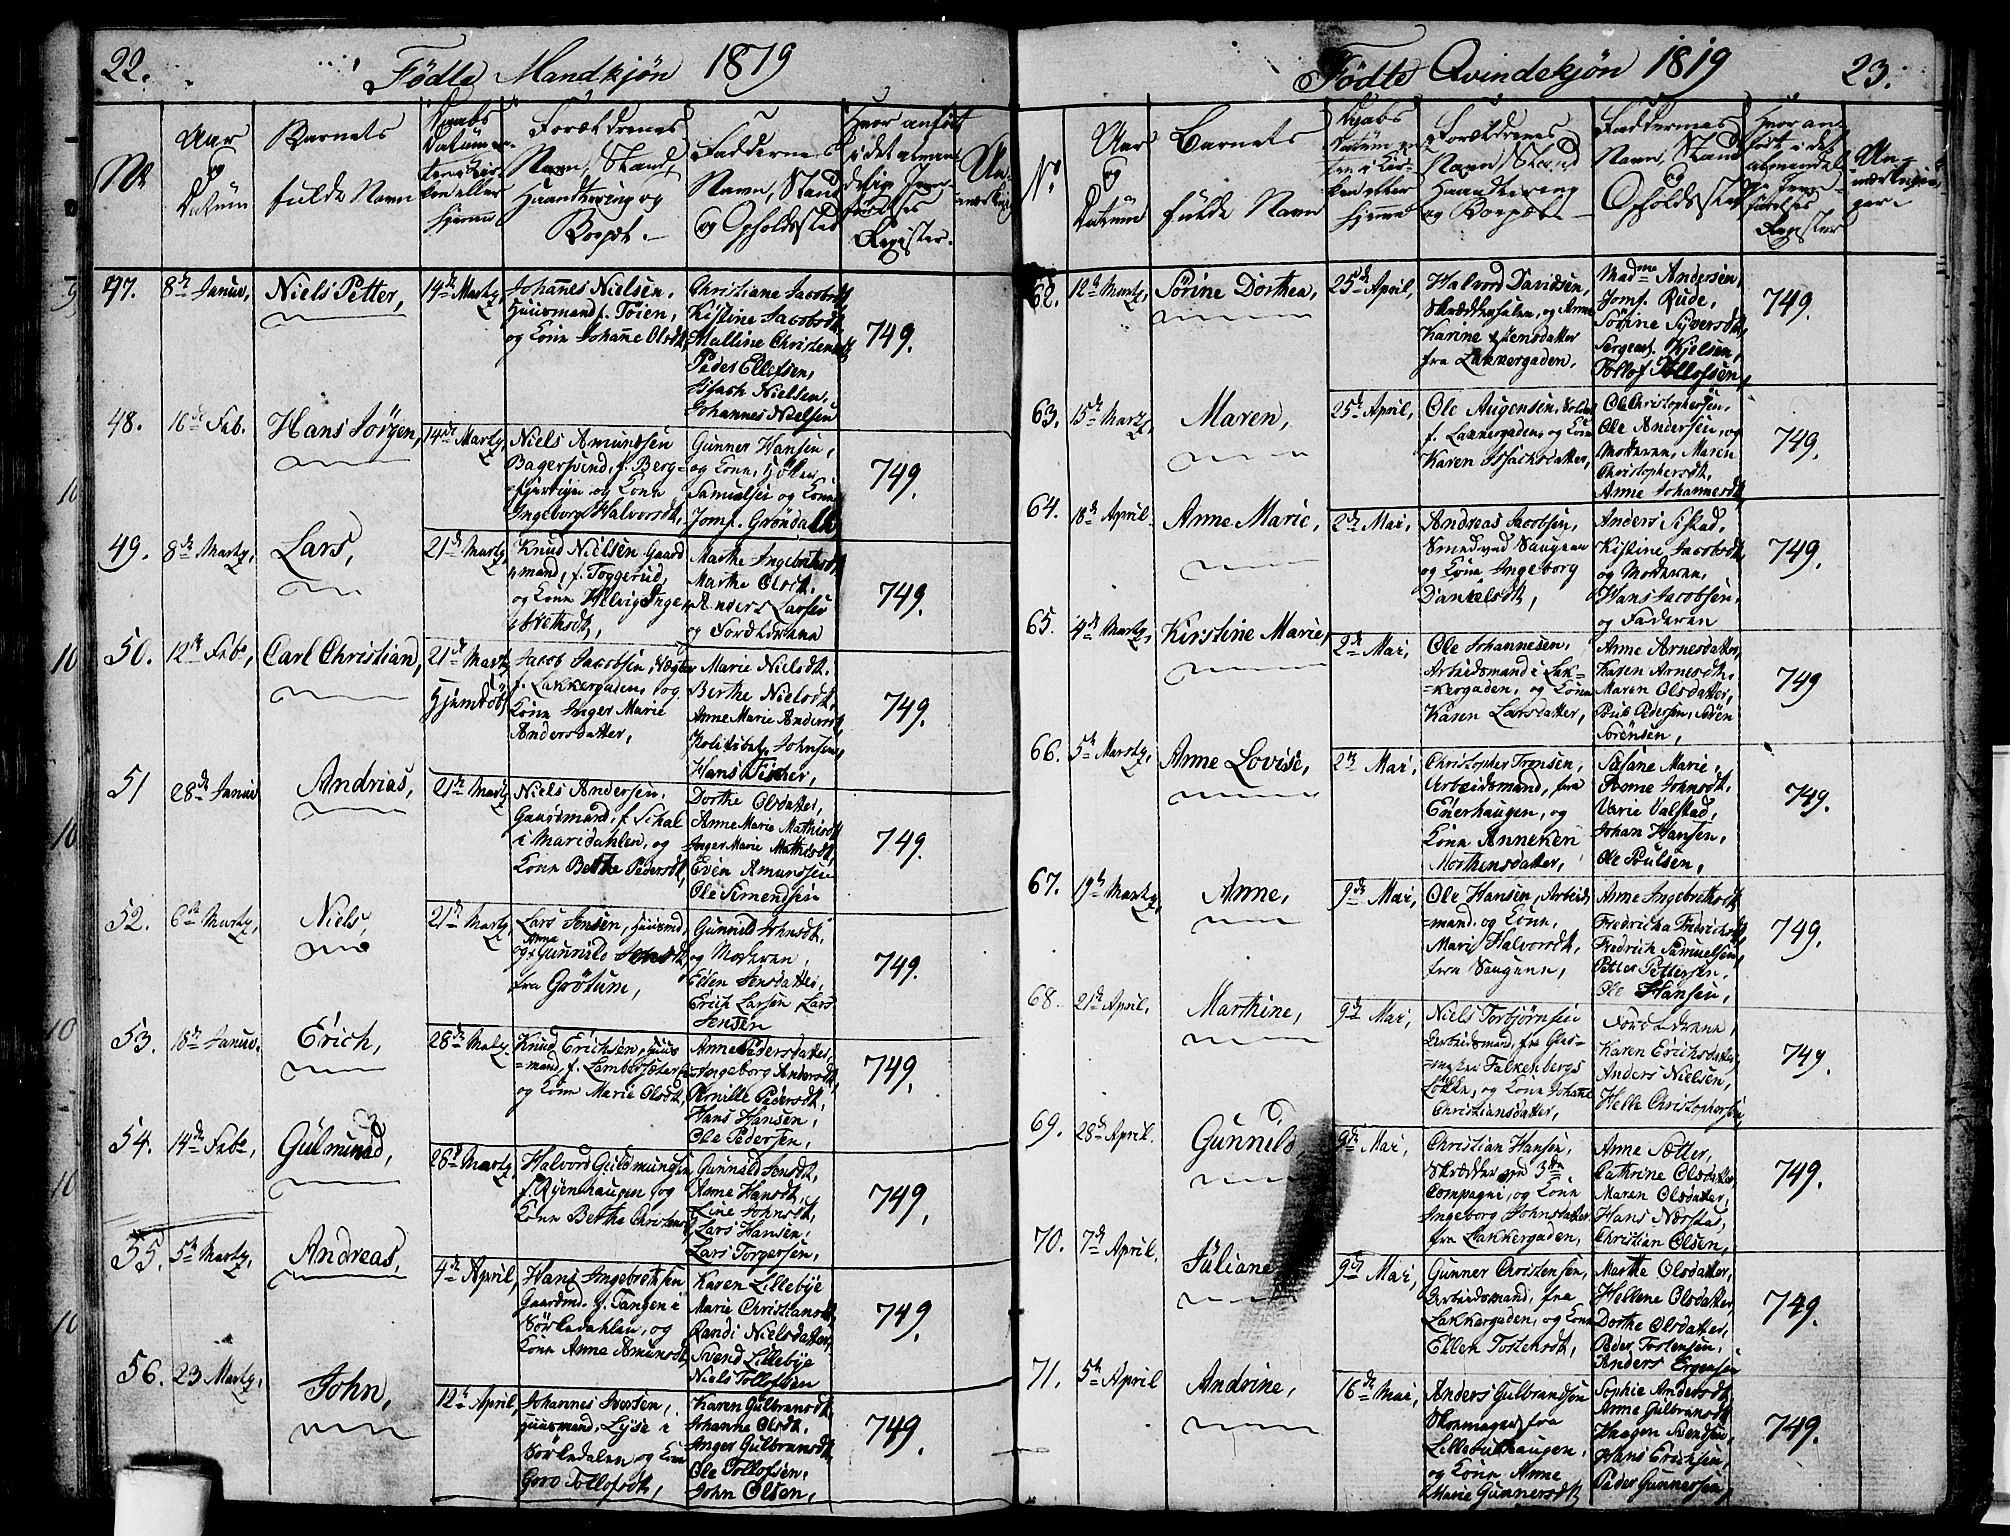 22.
Fødte Mandkjøn 1819
No
Aar
og
Datum
Barnets
fulde Navn
Daabs
Datum
Forældrenes
Navn, Stand,
Haandtering og
Boepæl.
Faddernes
Navn, Stand
og Opholdssted
Hvor anført
i det almin-
delige Jevn-
førelses
Register.
47.
8de Januv,
Niels Petter,
14de Marty,
Johannes Nielsen,
Huusmand f. Töien,
og Kone Johanne Olsdt,
Christiane Jacobsdt,
Kistine Jacobsdt,
Malline Christensdt,
Peder Ellefsen,
Isach Nielsen,
Johannes Nielsen
749.
48.
16de Feb.
Hans Jörgen,
14de Marty,
Niels Amundsen
Bagersvend, f. Berg-
og Kone
Ingeborg Halvorsdt,
Gunner Hansen,
og Kone,
Samuelsen og Kone
Jomf. Gröndahl,
749.
49.
8de Marty,
Lars,
21de Marty,
Knud Nielsen Gaard
mand, f. Toggerud,
og Kone Helvig Inge
brethsdt,
Marthe Ingebrethsdt,
Marthe Olsdt,
Anders Larsen
og Forældrene
749.
50.
12te Feb.,
Carl Christian,
21de Marty
Hjemdöbt
Jacob Jacobsen, Vægter
f. Lakkergaden, og
Kone Inger Marie
Andersdatter,
Marie Nielsdt.
Berthe Nielsdt,
Anne Marie Andersdt,
Politibet. Johnsen,
Hans Fischer,
749.
51
28de Januv
Andrias,
21de Marty
Niels Andersen,
Gaardmand, f. Skal
i Maridahlen, og
Kone Berthe Pedersdt,
Dorthe Olsdatter,
Anne Marie Mathisdt,
Inger Marie Mathisdt,
Even Amundsen
Ole Simensen
749.
52.
6te Marty,
Niels,
21de Marty,
Lars Jensen, Huusmd,
og Anne Gunnild Jensdt,
fra Grötum,
Gunnild Johnsdt,
og Moderen,
Eden Jensdatter,
Erich Larsen Lars
Jensen
749.
53.
18de Januv.
Erich,
28de Marty.
Knud Erichsen, Huus
=mand, f. Lambersæter
og Kone Marie Olsdt,
Anne Pedersdatter,
Ingeborg Andersdt,
Pernille Pedersdt,
Hans Hansen,
Ole Pedersen,
749.
54.
14de Feb.,
Gulmund,
28de Marty,
Halvord Guldmundsen
f. Ryenhaugen og
Kone Berthe Christensdt,
Gunnild Jensdt,
Anne Hansdt,
Line Johnsdt,
Lars Hansen,
Lars Torgersen,
749.
55.
5te Marty,
Andreas,
4de April,
Hans Ingebrethsen
Gaardmd. f. Tangen i
Sörkedahlen, og
Kone Anne Amundsdt,
Karen Lillebye
Marie Christiansdt,
Randi Nielsdatter,
Svend Lillebye
Niels Tollofsen
749.
56.
23 Marty,
John,
12te April,
Johannes Iversen,
Huusmand, Lyse i
Sörkedalen og Kone
Goro Tollofsdt,
Karen Gulbransdt,
Johanne Olsdt,
Inger Gulbransdt,
Ole Tollofsen,
John Olsen,
749.
Fødte Qvindekjön 1819
23.
No
Aar
og
Datum
Barnets
fulde Navn
Daabs
Datum en-
ten i Kir-
ken eller
hjemme
Forældrenes
Navn, Stand
Haandtering
og Boepæl
Faddernes
Navn, Stand
og
Opholdssted
Hvor an-
ført i det
almindeli-
ge Jevn-
førelses
Register
An-
mærknin-
ger
62.
12te Marty,
Sörine Dorthea,
25de April,
Halvord Davidsen,
Skrædkersvend, og Anne
Karine Stensdatter
fra Lakkergaden.
Madme Andersen,
Jomf. Rude,
Sörine Syversdt,
Sergeat. Kjelsen,
Tollof Tollofsen,
749.
63.
15de Marty,
Maren,
25de April,
Ole Augensen, Soldat
f. Lakkergaden, og Kone
Karen Isacksdatter,
Ole Christophersen,
Ole Andersen, og
Moderen, Maren
Christophersdt,
Anne Johannesdt,
749.
64.
18de April.
Anne Marie,
2den Mai,
Andreas Jacobsen,
Smed ved Saugene
og Kone Ingeborg
Danielsdt,
Anders
Kistine Jacobsdt,
og Moderen,
Hans Jacobsen,
og Faderen
749.
65.
4de Marty,
Kirstine Marie,
2den Mai,
Ole Johannesen,
Arbeidsmand i Lak-
=kergaden, og Kone
Karen Larsdatter,
Anne Arnesdatter,
Karen Arnesdt,
Maren Olsdatter,
Poul Pedersen, Sören
Sörensen,
749
66.
5te Marty,
Anne Lovise,
2den Mai,
Christopher Tronsen,
Arbeidsmand, fra
Enerhaugen, og
Kone Anneken
Morthensdatter,
Susane Marie,
Anne Johnsdt,
Marie Valstad,
Johan Hansen,
Ole Poulsen,
749.
67.
19de Marty,
Anne,
9de Mai,
Ole Hansen, Arbeids
=mand, og Kone,
Mari Halvorsdt,
fra Saugene,
Anne Ingebrethsdt,
Fredricka Fredrichsdt,
Fredrich Samuelsen,
Petter Pettersen,
Ole Hansen,
749.
68.
21de April,
Marthine,
9de Mai,
Niels Torbjörnsen
Arbeidsmand, fra Glas-
Falkenbergs
Løkke, og Kone Johanne
Christiansdatter,
Forældrene,
Karen Erichsdatter,
Anders Nielsen,
Helle Christophersen,
749.
69.
28de April.
Gunnild
9de Mai,
Christian Hansen,
Skrædder ved 3die
Compagni, og Kone
Ingeborg Johnsdatter
fra Lakkergaden,
Anne Sætter,
Cathrine Olsdatter
Maren Olsdatter,
Hans Nærstad,
Christian Olsen,
749.
70.
7de April.
Juliane
9de Mai,
Gunner Christensen,
Arbeidsmand, fra
Lakkergaden, og Kone
Ellen Tostensdt,
Marthe Olsdatter,
Hellene Olsdatter,
Dorthe Olsdatter,
Peder Tostensen,
Anders Ergensen
749.
71.
5te April
Andrine,
16de Mai,
Anders Gulbrandsen
Skomager fra
Lillebuthaugen,
og Kone Anne
Marie Gunnersdt,
Sophie Andersdt,
Anne Gulbransdt,
Haagen Svendsen,
Hans Erichsen,
Peder Gunnersen,
749.